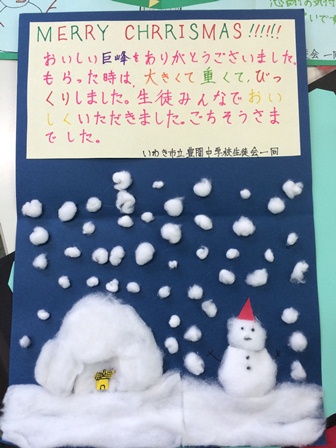 MERRY CHRRISMAS!!!!!!
おいしい巨峰をありがとうございました。
もらった時は、大きくて重くて、びっ
くりしました。生徒みんなでおい
しくいただきました。ごちそうさま
でした。
いわき市立豊間中学校生徒会一同